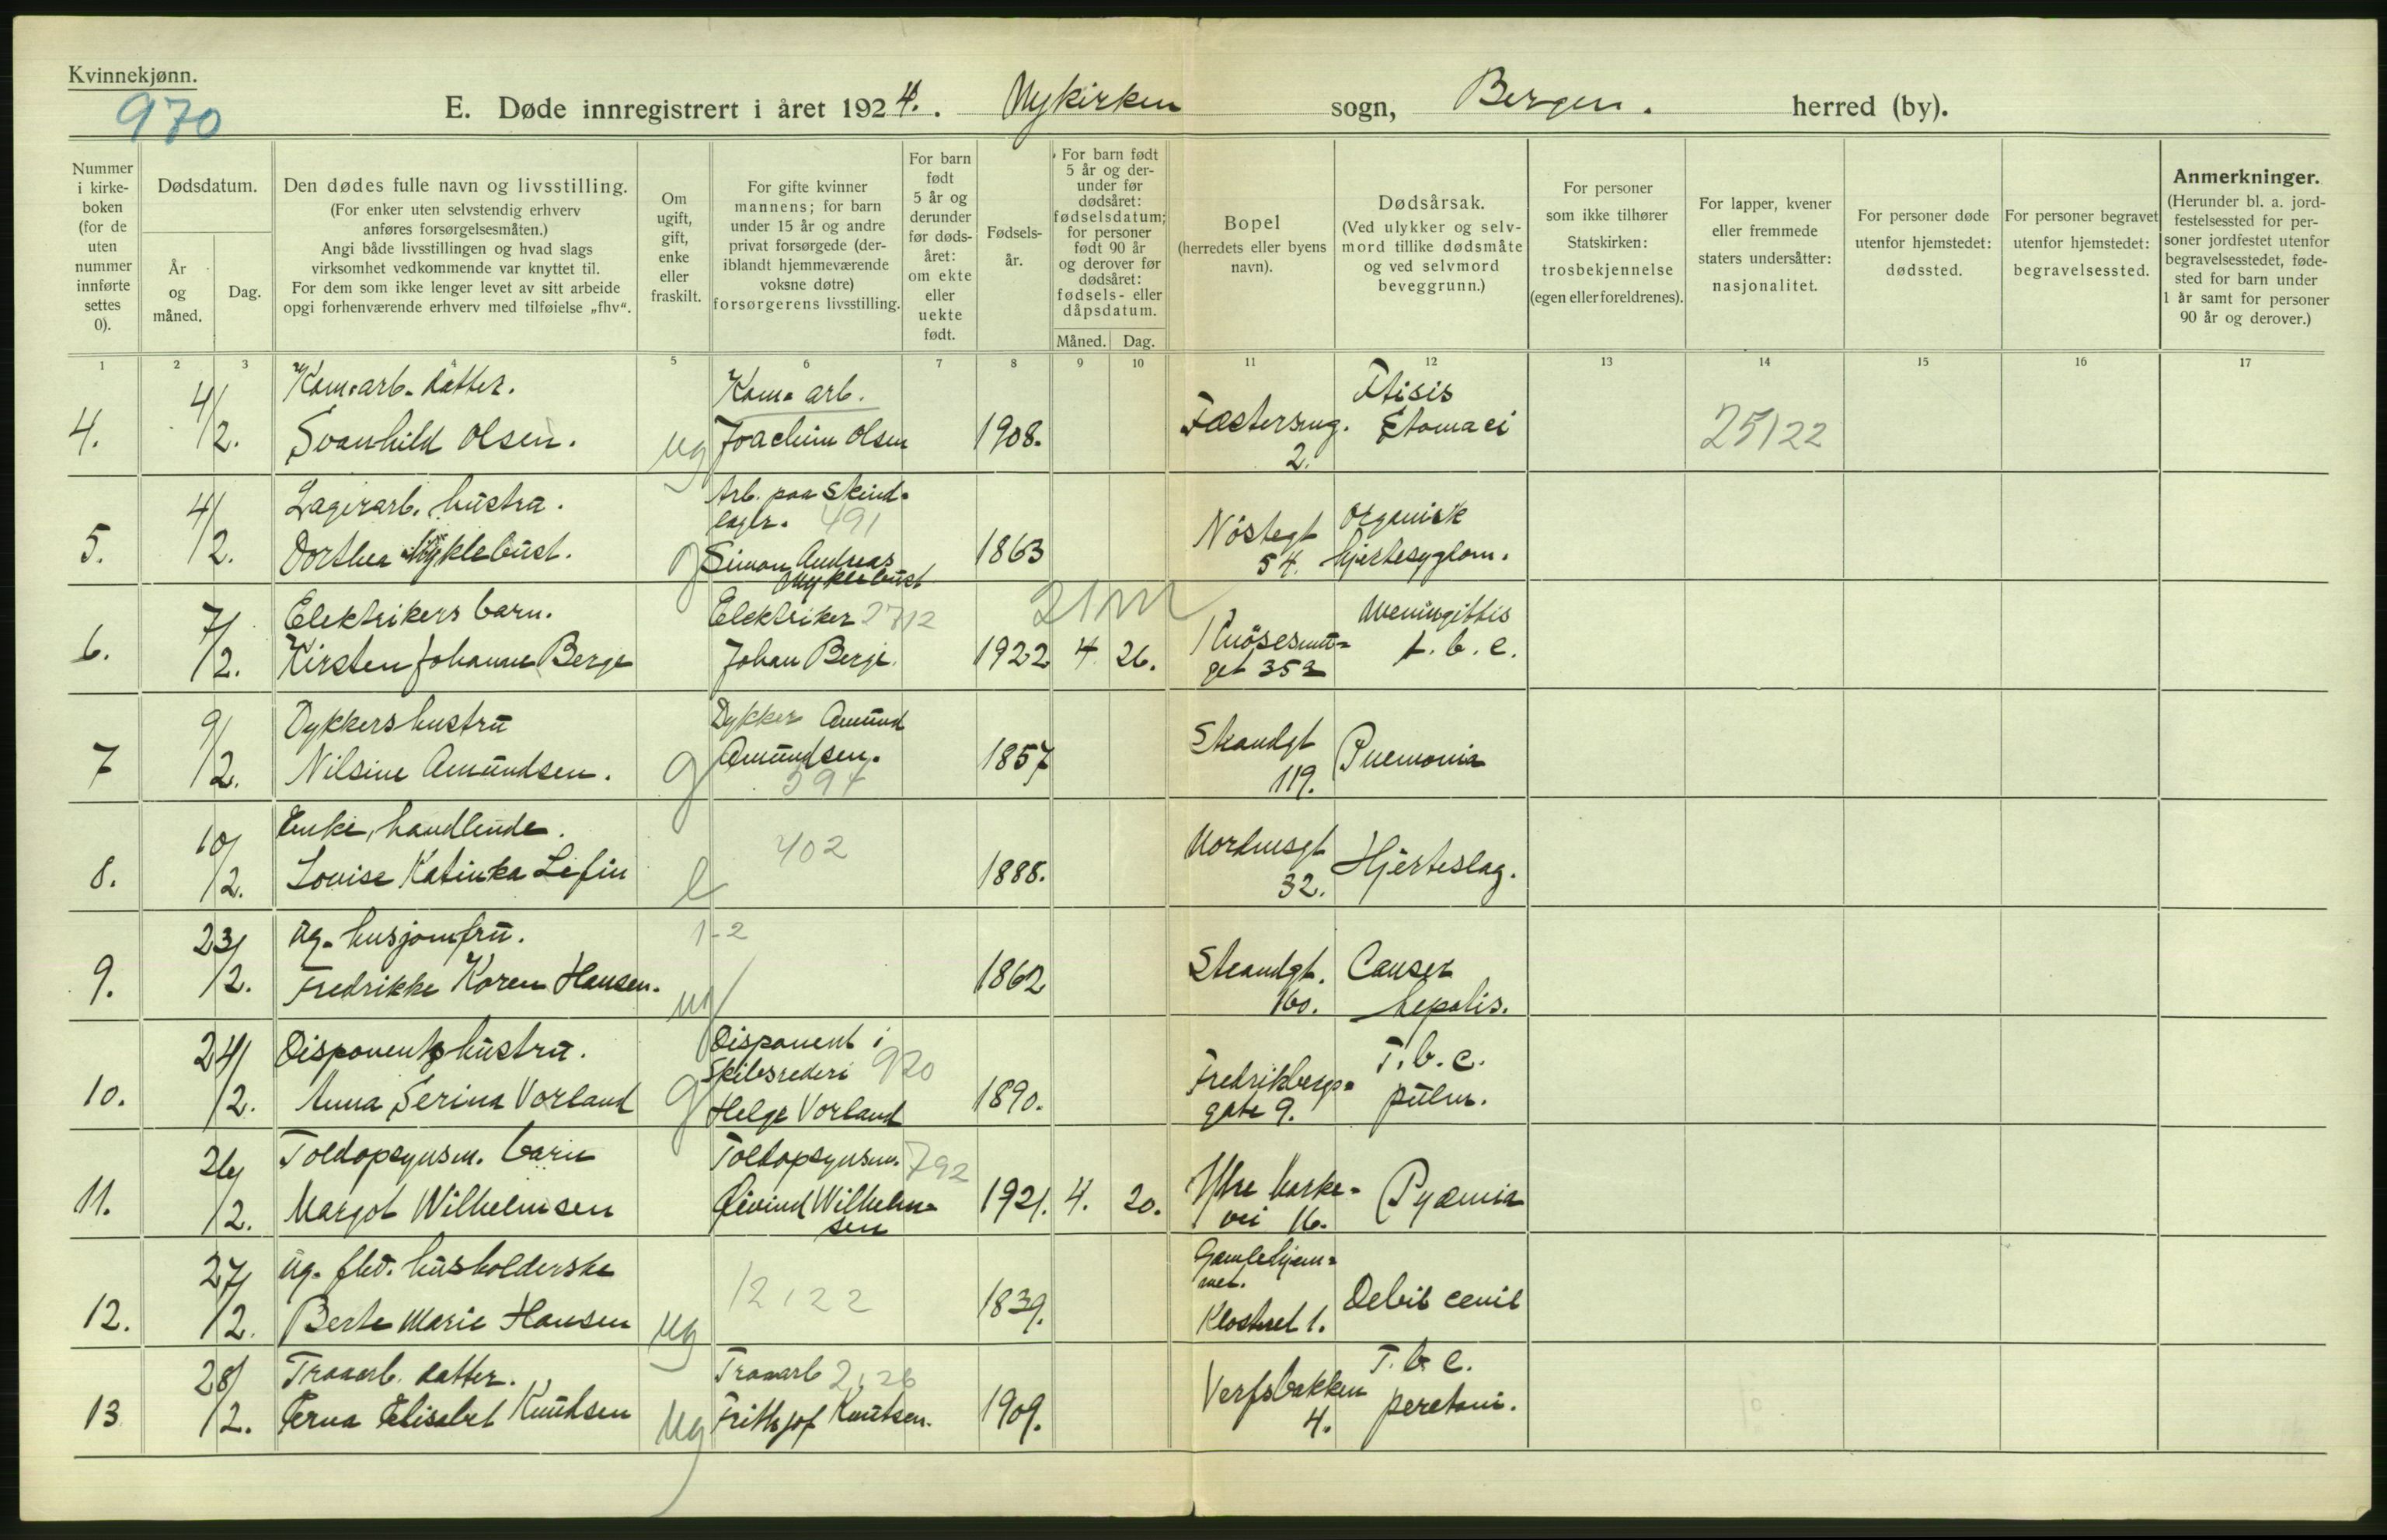 Kvinnekjønn.
970
E. Døde innregistrert i året 1924. Nykirken sogn, Bergen. herred (by).
Nummer i kirkeboken (for de uten nummer innførte settes 0).
Dødsdatum.
År og måned.
Dag.
Den dødes fulle navn og livsstilling.
(For enker uten selvstendig erhverv anføres forsørgelsesmåten.)
Angi både livsstillingen og hvad slags virksomhet vedkommende var knyttet til.
For dem som ikke lenger levet av sitt arbeide opgi forhenværende erhverv med tilføielse „fhv“.
Om ugift, gift, enke eller fraskilt.
For gifte kvinner mannens; for barn under 15 år og andre privat forsørgede (deriblandt hjemmeværende voksne døtre) forsørgerens livsstilling.
For barn født 5 år og derunder før dødsåret: om ekte eller uekte født.
Fødselsår.
For barn født 5 år og derunder før dødsåret: fødselsdatum; for personer født 90 år og derover før dødsåret: fødsels- eller dåpsdatum.
Måned. Dag.
Bopel (herredets eller byens navn).
Dødsårsak.
(Ved ulykker og selvmord tillike dødsmåte og ved selvmord beveggrunn.)
For personer som ikke tilhører Statskirken: trosbekjennelse (egen eller foreldrenes).
For lapper, kvener eller fremmede staters undersåtter: nasjonalitet.
For personer døde utenfor hjemstedet: dødssted.
For personer begravet utenfor hjemstedet: begravelsessted.
Anmerkninger.
(Herunder bl. a. jordfestelsessted for personer jordfestet utenfor begravelsesstedet, fødested for barn under 1 år samt for personer 90 år og derover.)
1 2 3 4 5 6 7 8 9 10 11 12 13 14 15 16 17
Kom. arb. datter. Kom. arb. Ftisis
4. 4/2. Svanhild Olsen. ug Joachim Olsen 1908. Fæstersmug. 2. Stomaci 25122
Lagerarb. hustru. Arb. paa Skindlager. 491
5. 4/2. Dorthea Myklebust. g Simon Andreas Myklebust 1863 Nöstegt 54. Organisk hjertesygdom.
Elektrikers barn. Elektriker 2712 21 m
6. 7/2. Kirsten Johanne Berge Johan Berge. 1922 4 26. Knösesmuget 35a Meningittis t. b. c.
Dykkers hustru Dykker Amund
7 9/2. Nilsine Amundsen. g Amundsen. 394 1857 Strandgt 119. Pnemonia
Enke, handlende. 402
8. 10/2. Louise Katinka Lefin e 1888. Nordnesgt 32. Hjerteslag.
Ug. husjomfru. 1-2
9. 23/2. Fredrikke Karen Hansen. ug 1862 Strandgt. 160. Cancer hepatis.
Disponents hustru. Disponent i Skibsrederi 920
10. 24/2. Anna Serina Vorland g Helge Vorland 1890. Fredriksbergsgate 9. T. b. c. pulm.
Toldopsynsm. barn Toldopsynsm. 792
11. 26/2. Margot Wilhelmsen Øivind Wilhelmsen 1921. 4. 20. Ytre Markevei 16. Pyæmia
Ug. fhv. husholderske 12122
12. 27/2. Berte Marie Hansen ug 1839. Gamlehjemmet. Klosteret 1. Debil cenil
Tranarb. datter. Tranarb 2126
13 28/2. Erna Elisabet Knudsen ug Frithjof Knutsen. 1909. Verfsbakken 4. T. b. c. peretoni.